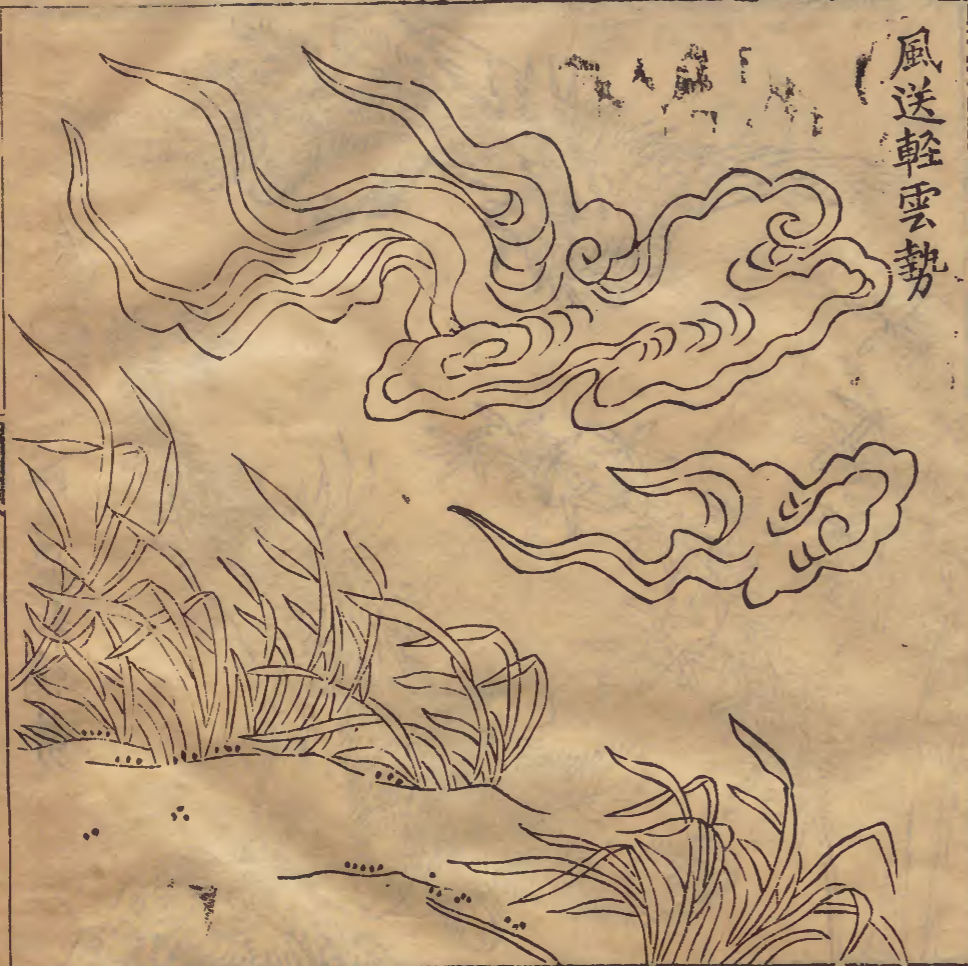 風送軽雲勢